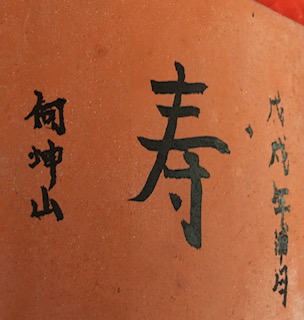 戊戌年蒲月
寿
何坤山